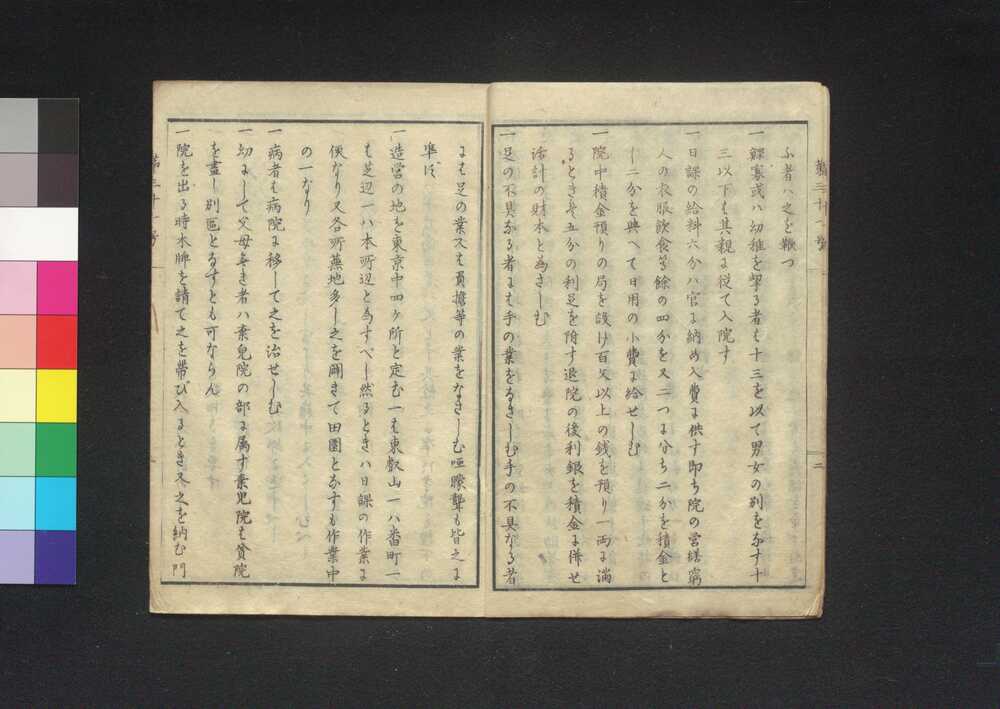 第三十一号
二
ふ者ハ之を鞭つ
一鰥寡或ハ幼稚を挈る者も十三を以て男女の別をなす十
三以下も其親に従て入院す
一日課の給料六分ハ官に納め入費に供す即ち院の営繕窮
人の衣服飲食等餘の四分を又二つに分ち二分を積金と
し二分を與へて日用の小費に給せしむ
一院中積金預りの局を設け百文以上の銭を預り一両に満
るときは五分の利足を附す退院の後利銀を積金に併せ
活計の財本と為さしむ
一足の不具なる者にも手の業をなさしむ手の不具なる者
にも足の業又も負擔等の業をなさしむ唖矇聾も皆之に
準ず
一造営の地を東京中四ヶ所と定む一も東叡山一ハ番町一
も芝辺一ハ本所辺と為すべし然るときハ日課の作業に
便なり又各所蕪地多し之を開きて田園となすも作業中
の一なり
一病者も病院に移して之を治せしむ
一幼にして父母無き者ハ棄児院の部に属す棄児院も貧院
を盡し別區となすとも可ならん
一院を出る時木牌を請て之を帯び入るとき又之を納む門
第三十一号